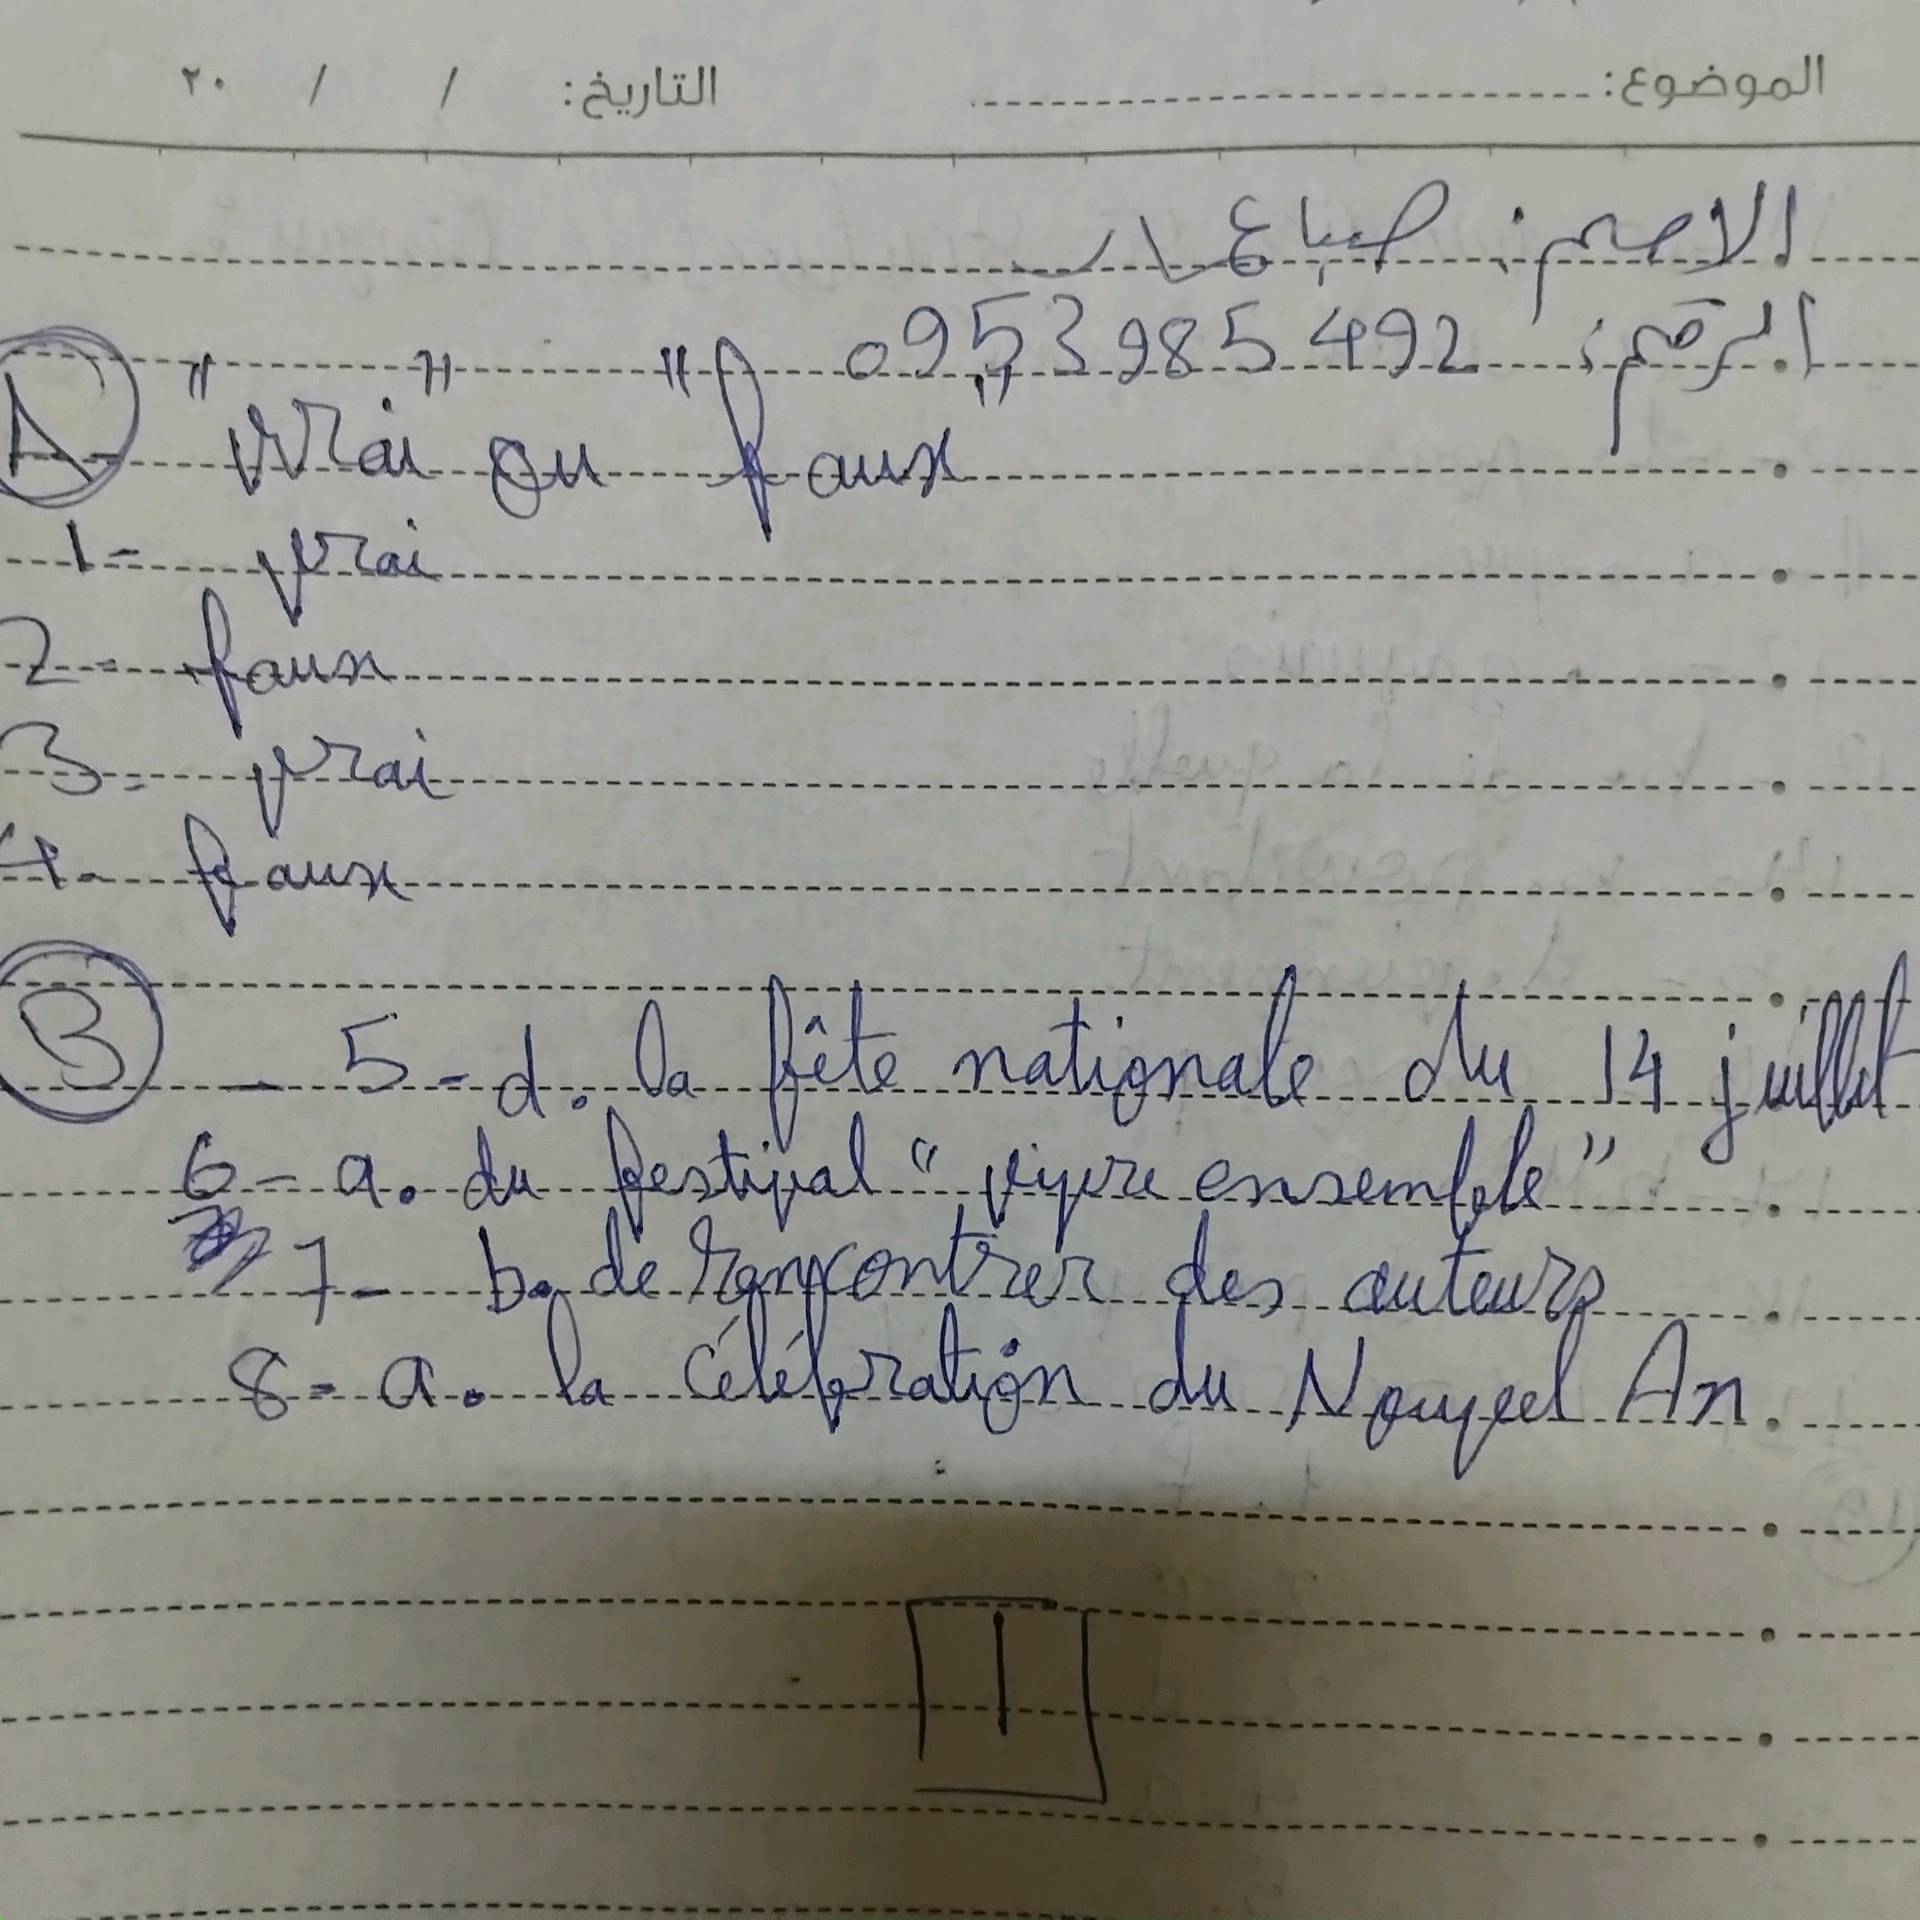 الموضوع: التاريخ: / / ٢٠
الاسم: صبا
الرقم: 0953985492
A "vrai" ou "faux"
1- vrai
2- faux
3- vrai
4- faux
B - 5-d. la fête nationale du 14 juillet
6- a. du festival "vivre ensemble"
7- b. de rencontrer des auteurs
8- a. la célébration du Nouvel An.
1